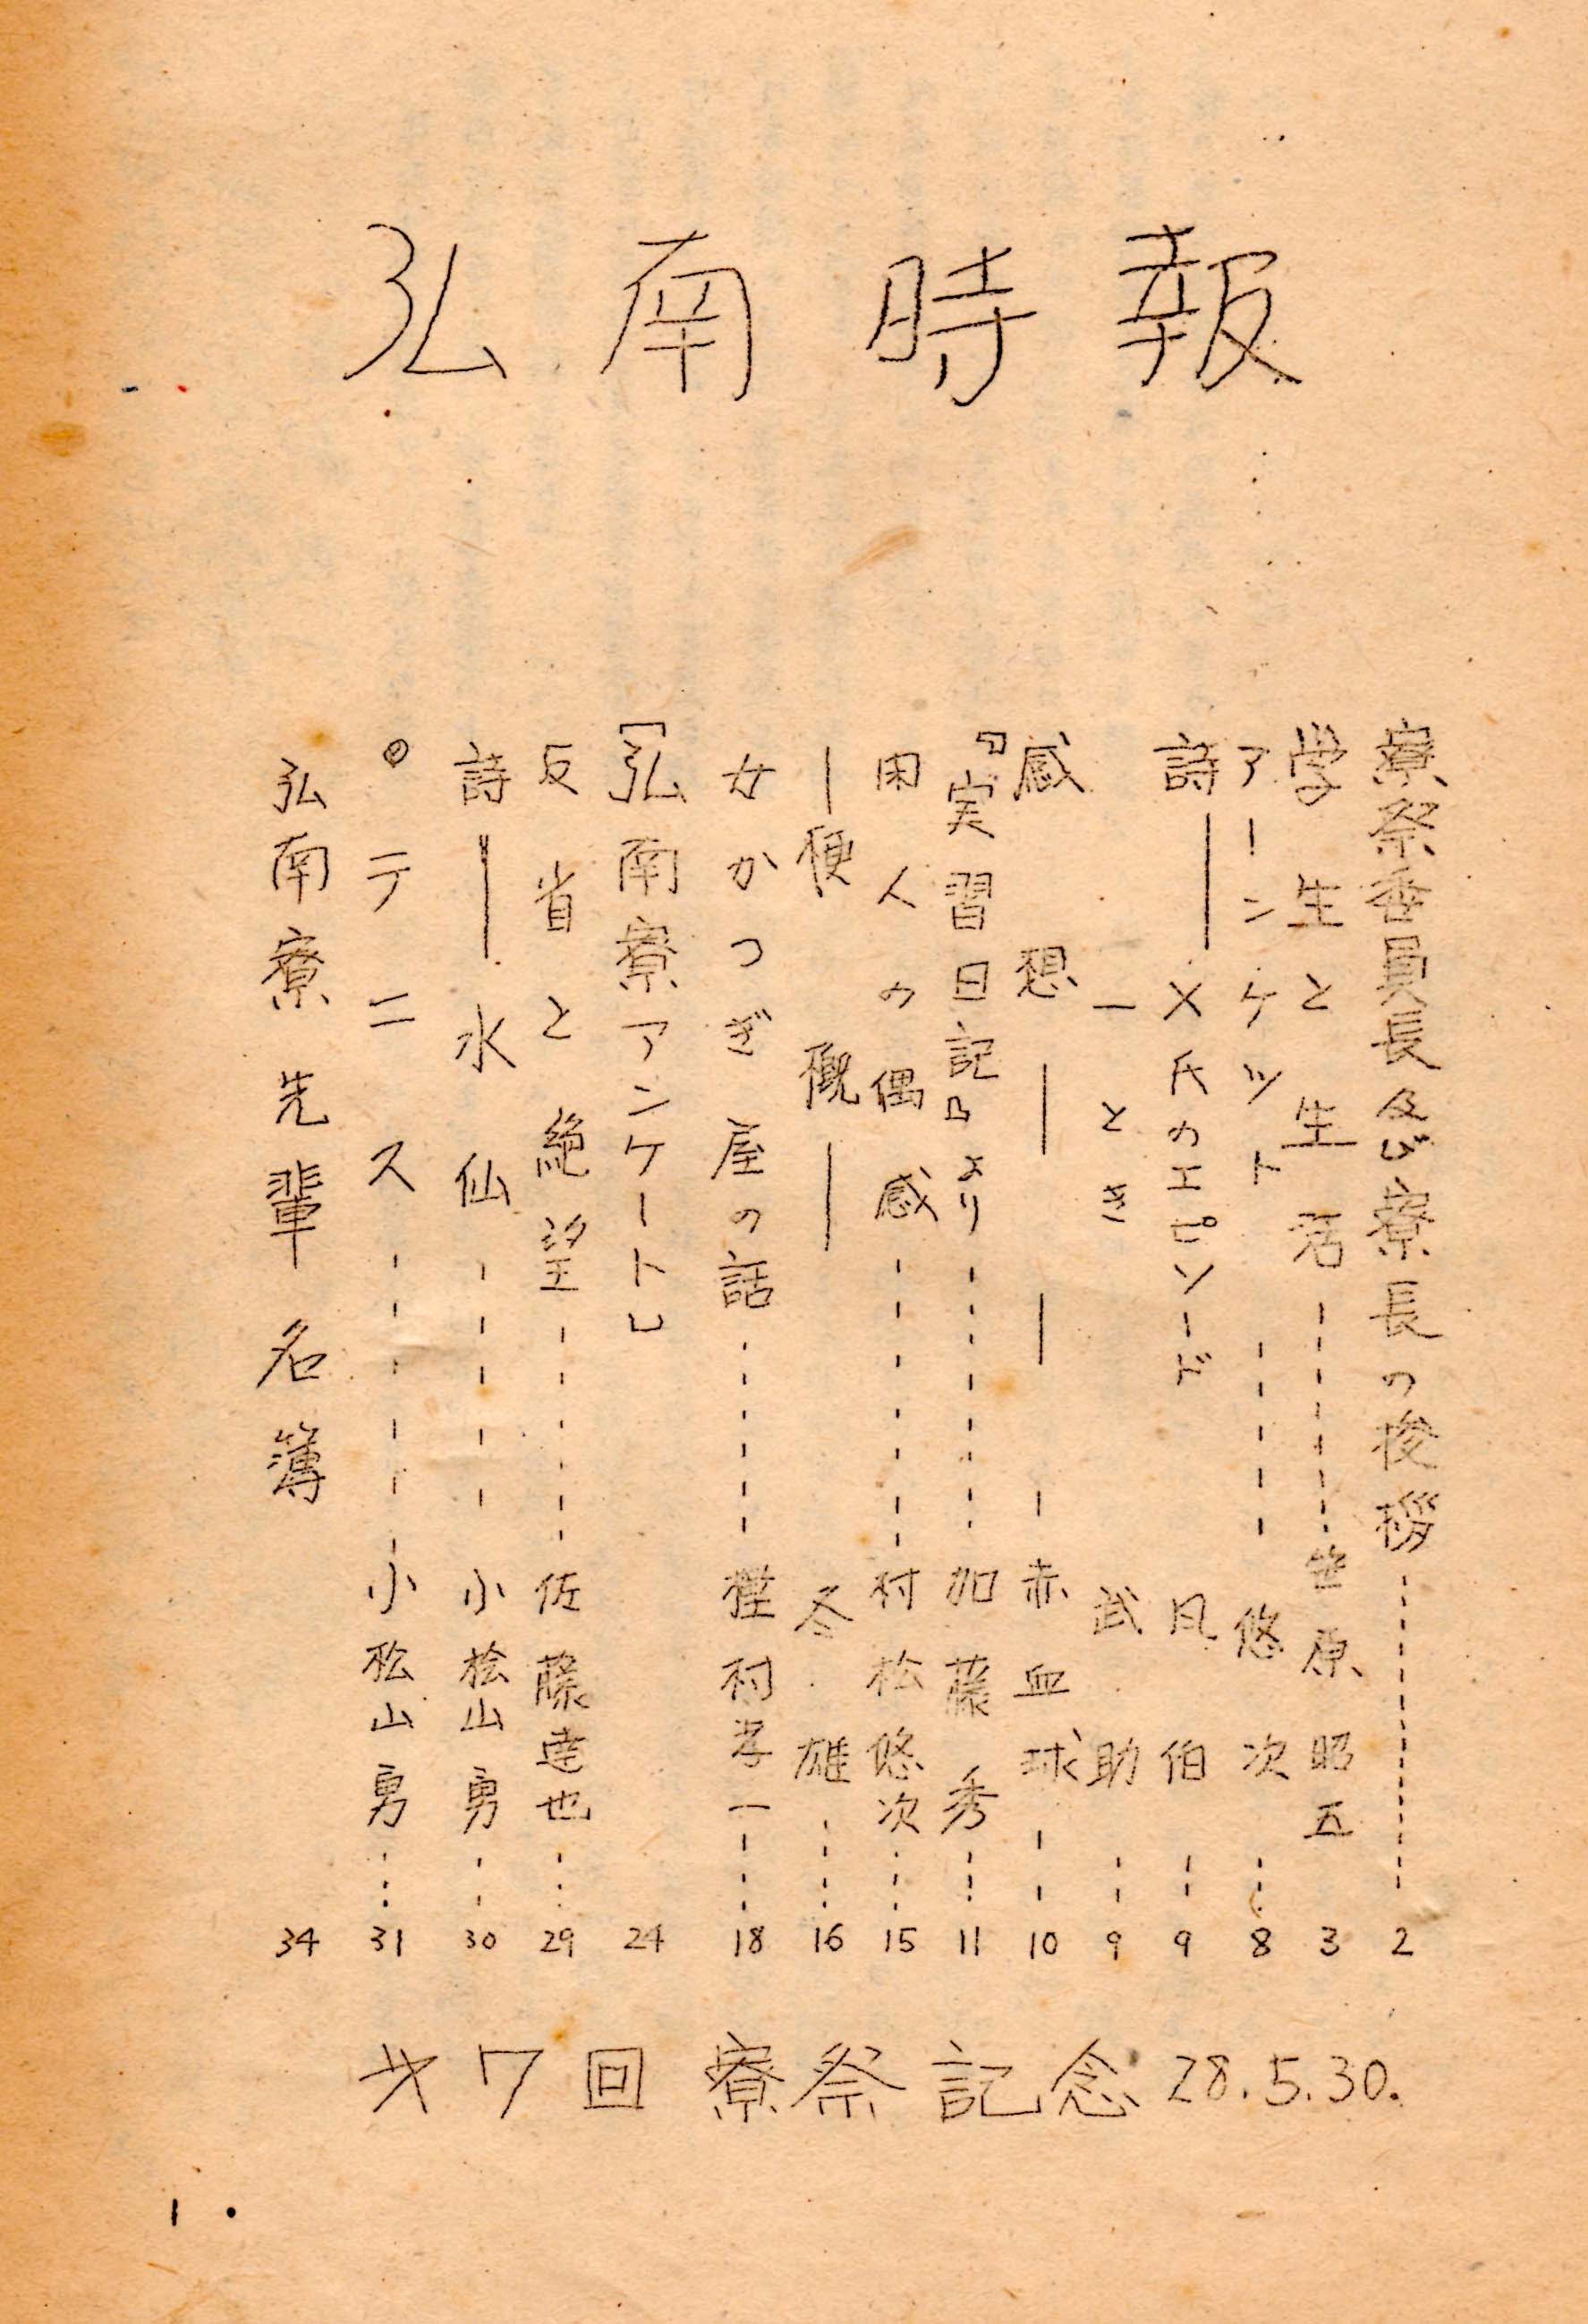 弘南時報
寮祭委員長及び寮長の挨拶‥‥‥‥‥2
学生と生活‥‥‥‥笠原昭五 3
アーンケツト‥‥‥‥悠次‥‥8
詩――メ氏のエピソード 凡伯‥‥9
一とき 武助‥‥9
感想――――赤血球‥‥10
『実習日記』より‥‥‥‥加藤秀‥‥11
困人の偶感‥‥‥‥村松悠次‥‥15
―便概― 冬雄‥‥16
女かつぎ屋の話‥‥‥‥村孝一‥‥18
「弘南寮アンケート」 24
反省と絶望‥‥‥‥佐藤達也‥‥29
詩――水仙‥‥‥‥小桧山勇‥‥30
◎テニス‥‥‥‥小松山勇‥‥31
弘南寮先輩名簿 34
才7回寮祭記念 28.5.30.
1.